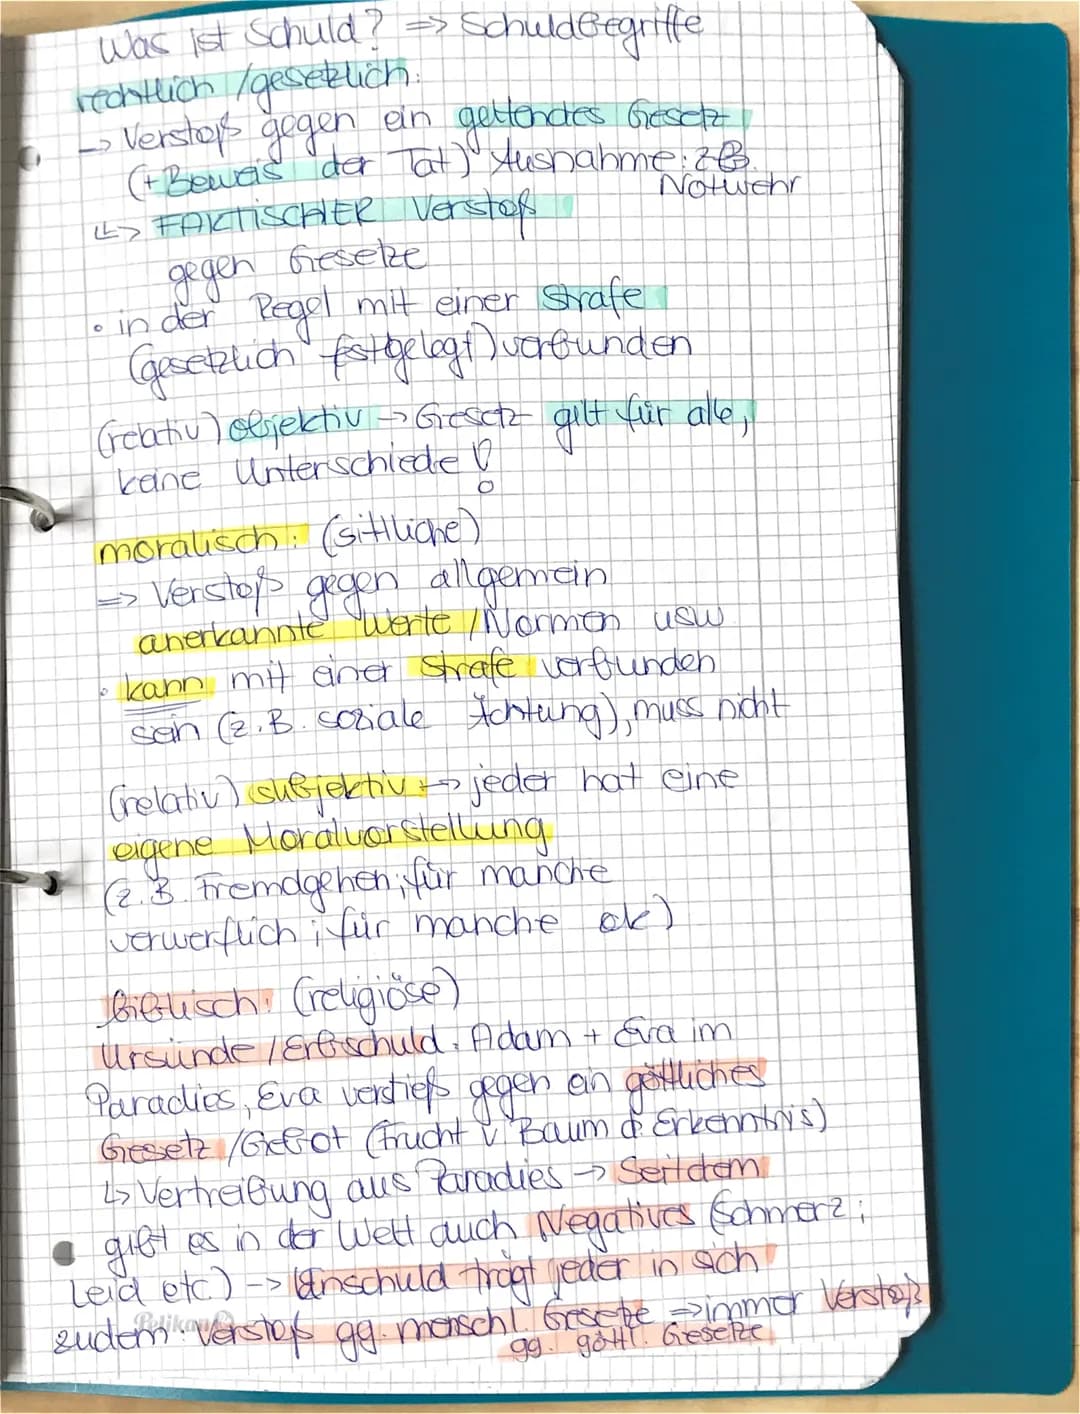 Was ist Schuld? => Schuldbegriffe
rechtlich /gesetzlich:
-> Verstoß gegen ein geltendes Gesetz
(+Beweis der Tat) Ausnahme: z.B.
Notwehr
↳> FAKTISCHER Verstoß
gegen Gesetze
• in der Regel mit einer Strafe
(gesetzlich festgelegt) verbunden
(relativ) objektiv -> Gesetz gilt für alle,
keine Unterschiede!
moralisch: (sittliche)
=> Verstoß gegen allgemein
anerkannte Werte /Normen usw
• kann mit einer Strafe verbunden
sein (z.B. soziale Ächtung), muss nicht
(relativ) subjektiv -> jeder hat eine
eigene Moralvorstellung
(z.B. Fremdgehen; für manche
verwerflich; für manche ok)
biblisch: (religiöse)
Ursünde /Erbschuld: Adam + Eva im
Paradies, Eva verstieß gegen ein göttliches
Gesetz /Gebot (Frucht v. Baum d. Erkenntnis)
↳ Vertreibung aus Paradies -> Seitdem
gibt es in der Welt auch Negatives (Schmerz;
Leid etc.) -> trägt jeder in sich
Pelikan
zudem: Verstoß gg. menschl. Gesetze => immer Verstoß
gg. göttl. Gesetze